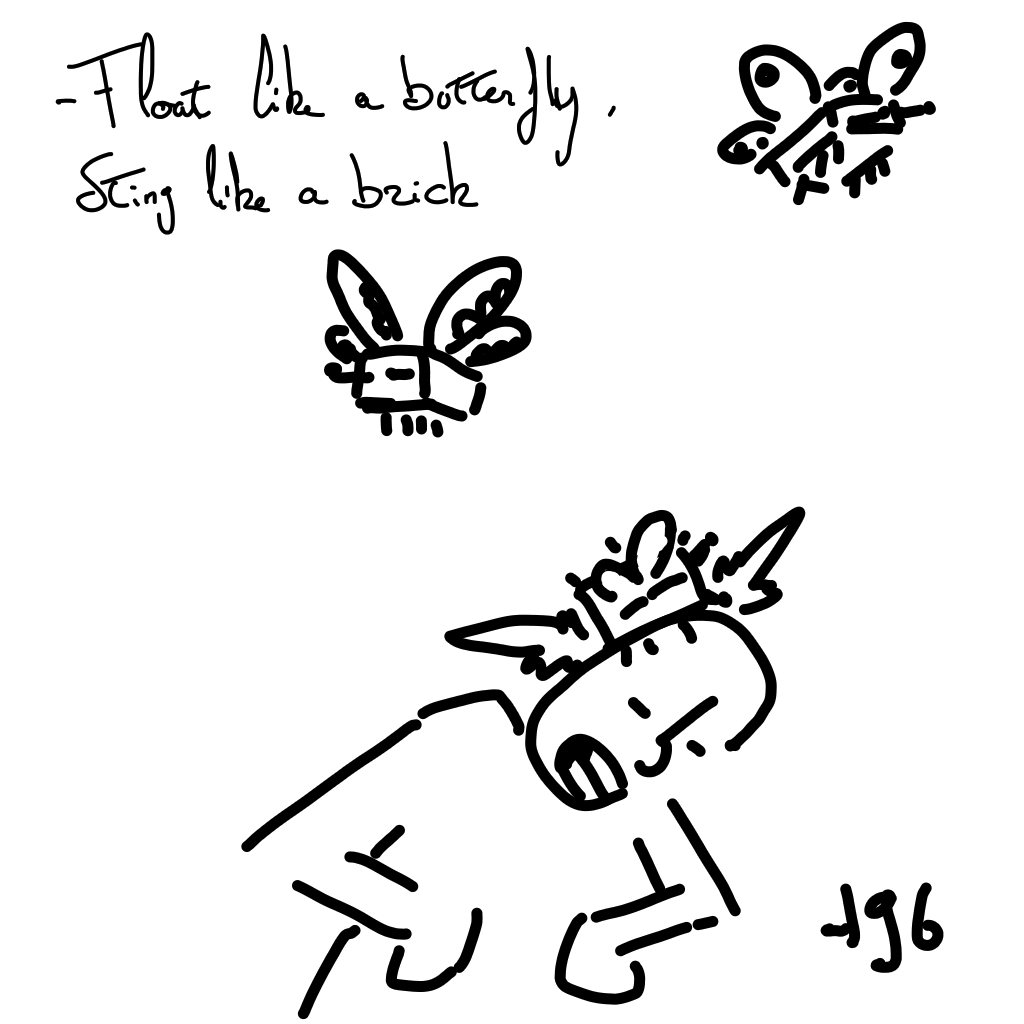 -Float like a butterfly,
Sting like a brick
-196